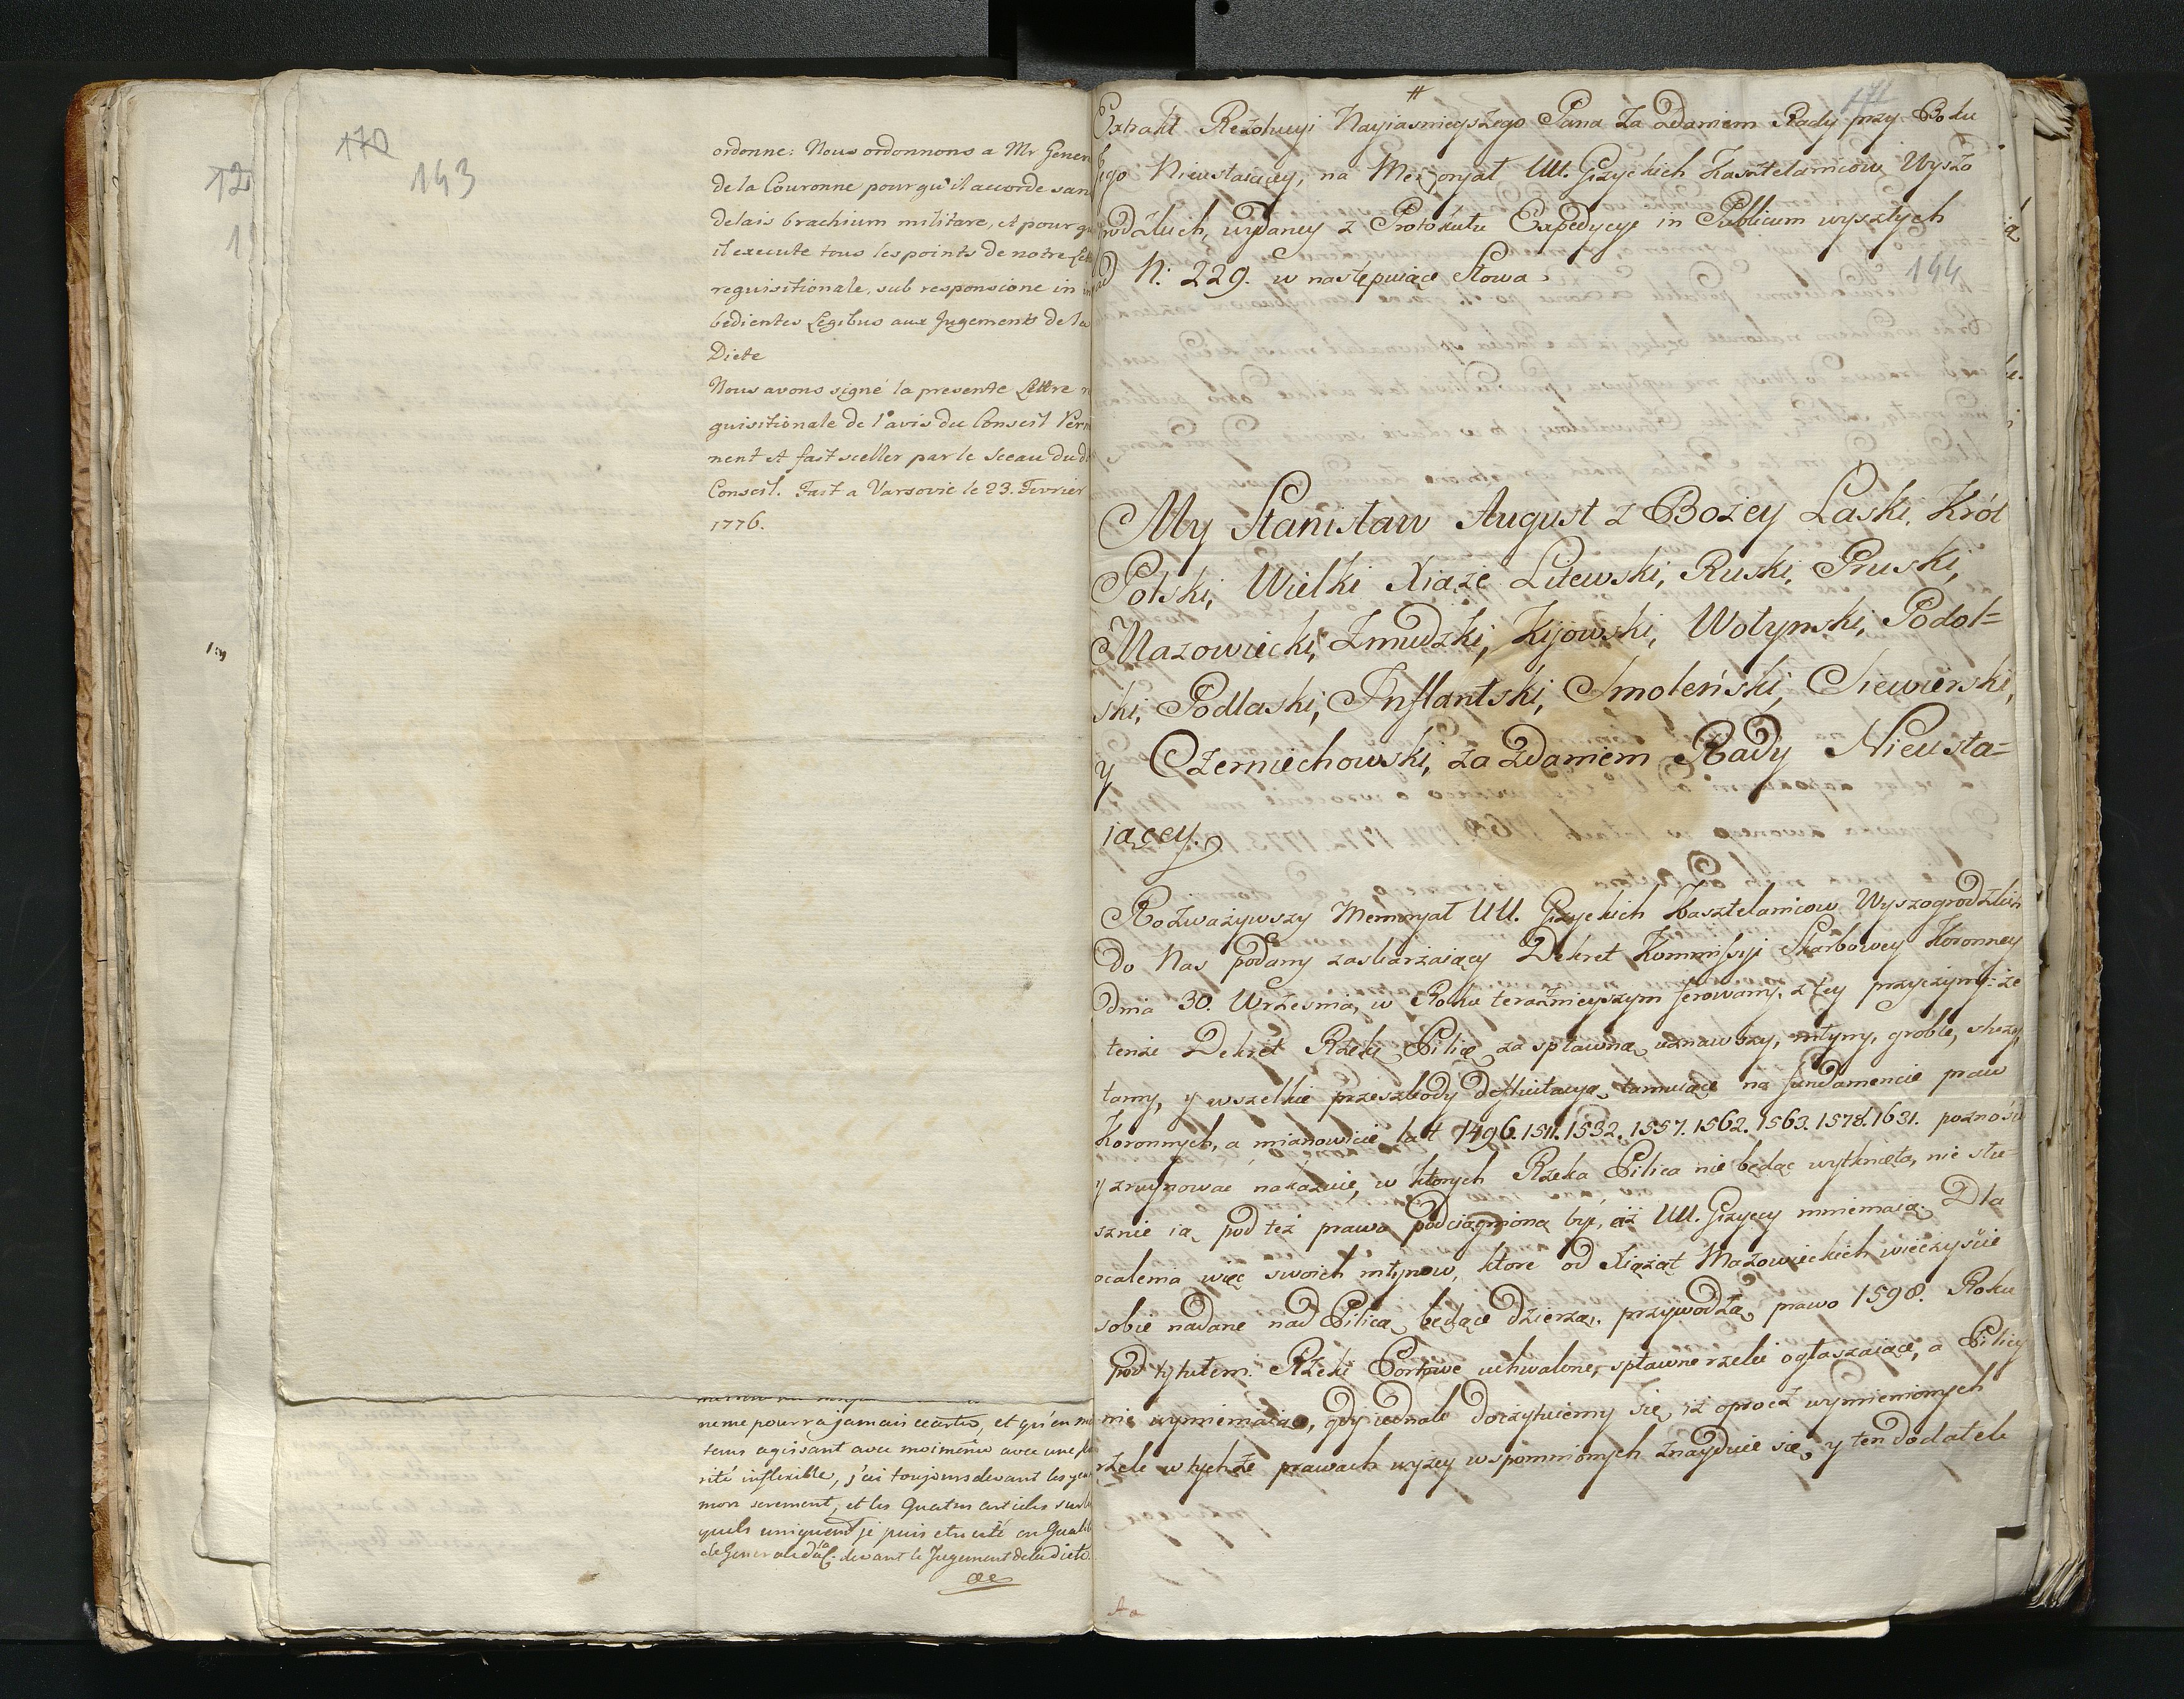 170
143
12
ordonne: Nous ordonnons a Mr Gener
de la Couronne pour qu'il accorde san
delais brachium militare, et pour qu
il execute tous les points de notre Let
requisitionale, sub responsione in in
bedientes Legibus aux Jugements de la
Diete
Nous avons signé la presente Lettre re
quisitionale de l'avis du Conseil Perm
nent et fait sceller par le Sceau du d
Conseil. Fait a Varsovie le 23. Fevrier
1776.
ne me pourra jamais ecarter, et qu'en m
tems agissant avec moi même avec une
rité inflexible, j'ai toujours devant les yeux
mon serment, et les Quatres articles sur le
quels uniquement je puis etre cité en Qualité
de General d'a devant le Jugement de la Diete.
171
#
Extrakt Rezolucyi Nayiasnieyszego Pana za Zdaniem Rady przy Boku
Iego Nieustaiącey, na Memoryał UU. Giżyckich Kasztelanicow Wyszo
grodzkich, wydaney z Protokułu Expedycyi in Publicum wyszłych
ad N: 229. w następuiące Słowa
144
My Stanisław August z Bożey Łaski, Król
Polski, Wielki Xiąże Litewski, Ruski, Pruski,
Mazowiecki, Zmudzki, Kijowski, Wołynski, Podol=
ski, Podlaski, Inflantski, Smoleński, Siewierski,
y Czerniechowski, za Zdaniem Rady Nieusta=
iącey.
Rozważywszy Memoryał UU. Giżyckich Kasztelanicow Wyszogrodzkich
do Nas podany zaskarzaiący Dekret Kommissyi Skarbowey Koronney
dnia 30. Wrzesnia, w Roku teraznieyszym ferowany, z tey przyczyny: że
tenże Dekret Rzekę Pilicę za spławną uznawszy, młyny, groble,
tamy, y wszelkie przeszkody defluitacyą tamuiące na fundamencie praw
Koronnych, a mianowicie lat 1496. 1511. 1532. 1557. 1562. 1563. 1578. 1631. poznosić
y zruynować nakazuie, w ktorych Rzeka Pilica nie będąc wytknięta, nie słu-
sznie ią pod też prawa podciągnioną być, UU. Giżyccy mniemaią. Dla
ocalenia więc swoich młynow, ktore od Xiążąt Mazowieckich wieczyście
sobie nadane nad Pilicą będące dzierżą, przywodzą prawo 1598. Roku
pod tytułem: Rzeki Portowe uchwalone, spławne rzeki ogłaszaiące, a Pilicy
nie wymieniaiące, gdy iednak doczytuiemy się, iż oprocz wymienionych
rzek w tychże prawach wyżey wspomnionych znayduie się y ten dodatek